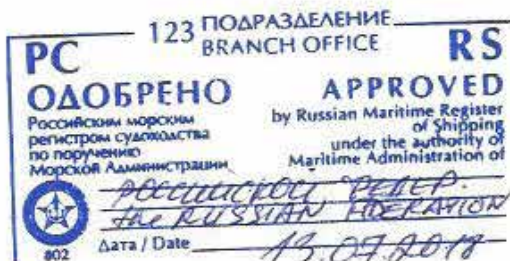 123 ПОДРАЗДЕЛЕНИЕ
BRANCH OFFICE
РС
RS
ОДОБРЕНО
Российским морским
регистром судоходства
по поручению
Морской Администрации
APPROVED
by Russian Maritime Register
of Shipping
under the authority of
Maritime Administration of
РОССИЙСКОЙ ФЕДЕР.
the RUSSIAN FEDERATION
802
Дата / Date 13.07.2018